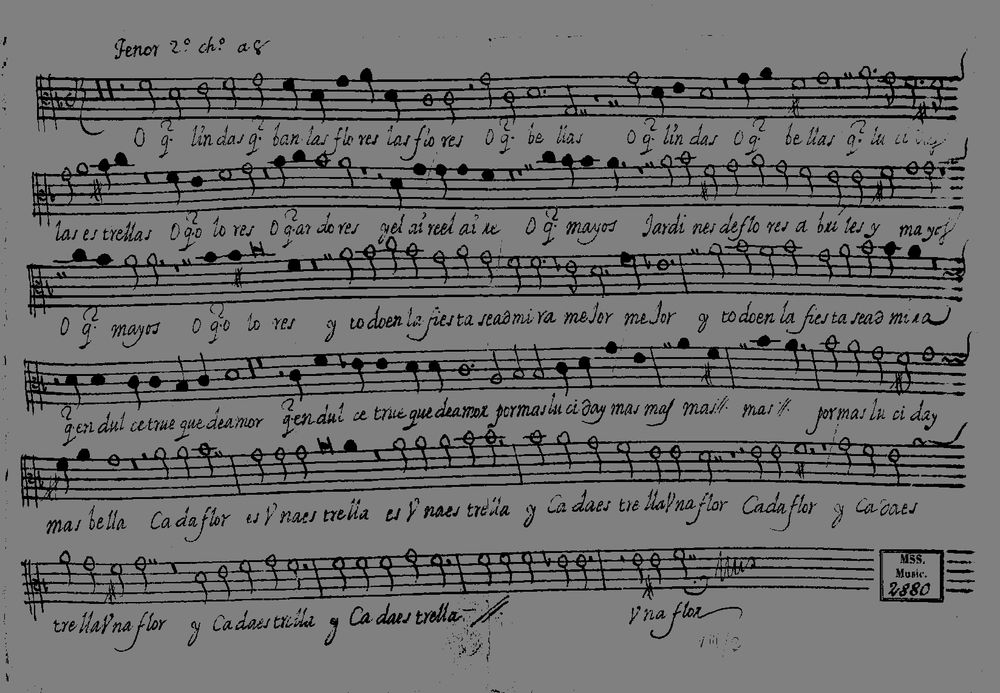 Tenor 2º chº a 8
O q̃. lindas q̃ ban las flores las flores O q̃. bellas O q̃. lindas O q̃ bellas q̃. lu ci
las estrellas O q̃.o lo res O q̃.ar do res y el aire el aire O q̃. mayos Jardines deflores abriles y mayos
O q̃. mayos O q̃.o lo res y todo en la fiesta sea dmira mejor mejor y todo en la fiesta sea dmira
q̃.en dulce true que de amor q̃.en dulce true que de amor por mas luci day mas mas mas // mas // por mas lu ci day
mas bella Cada flor es Vna estrella es Vna estrella y Cada estrella Vna flor Cada flor y Cada es
trella Vna flor y Cada estrella y Cada estrella // Vna flor
MSS.
Music.
2880